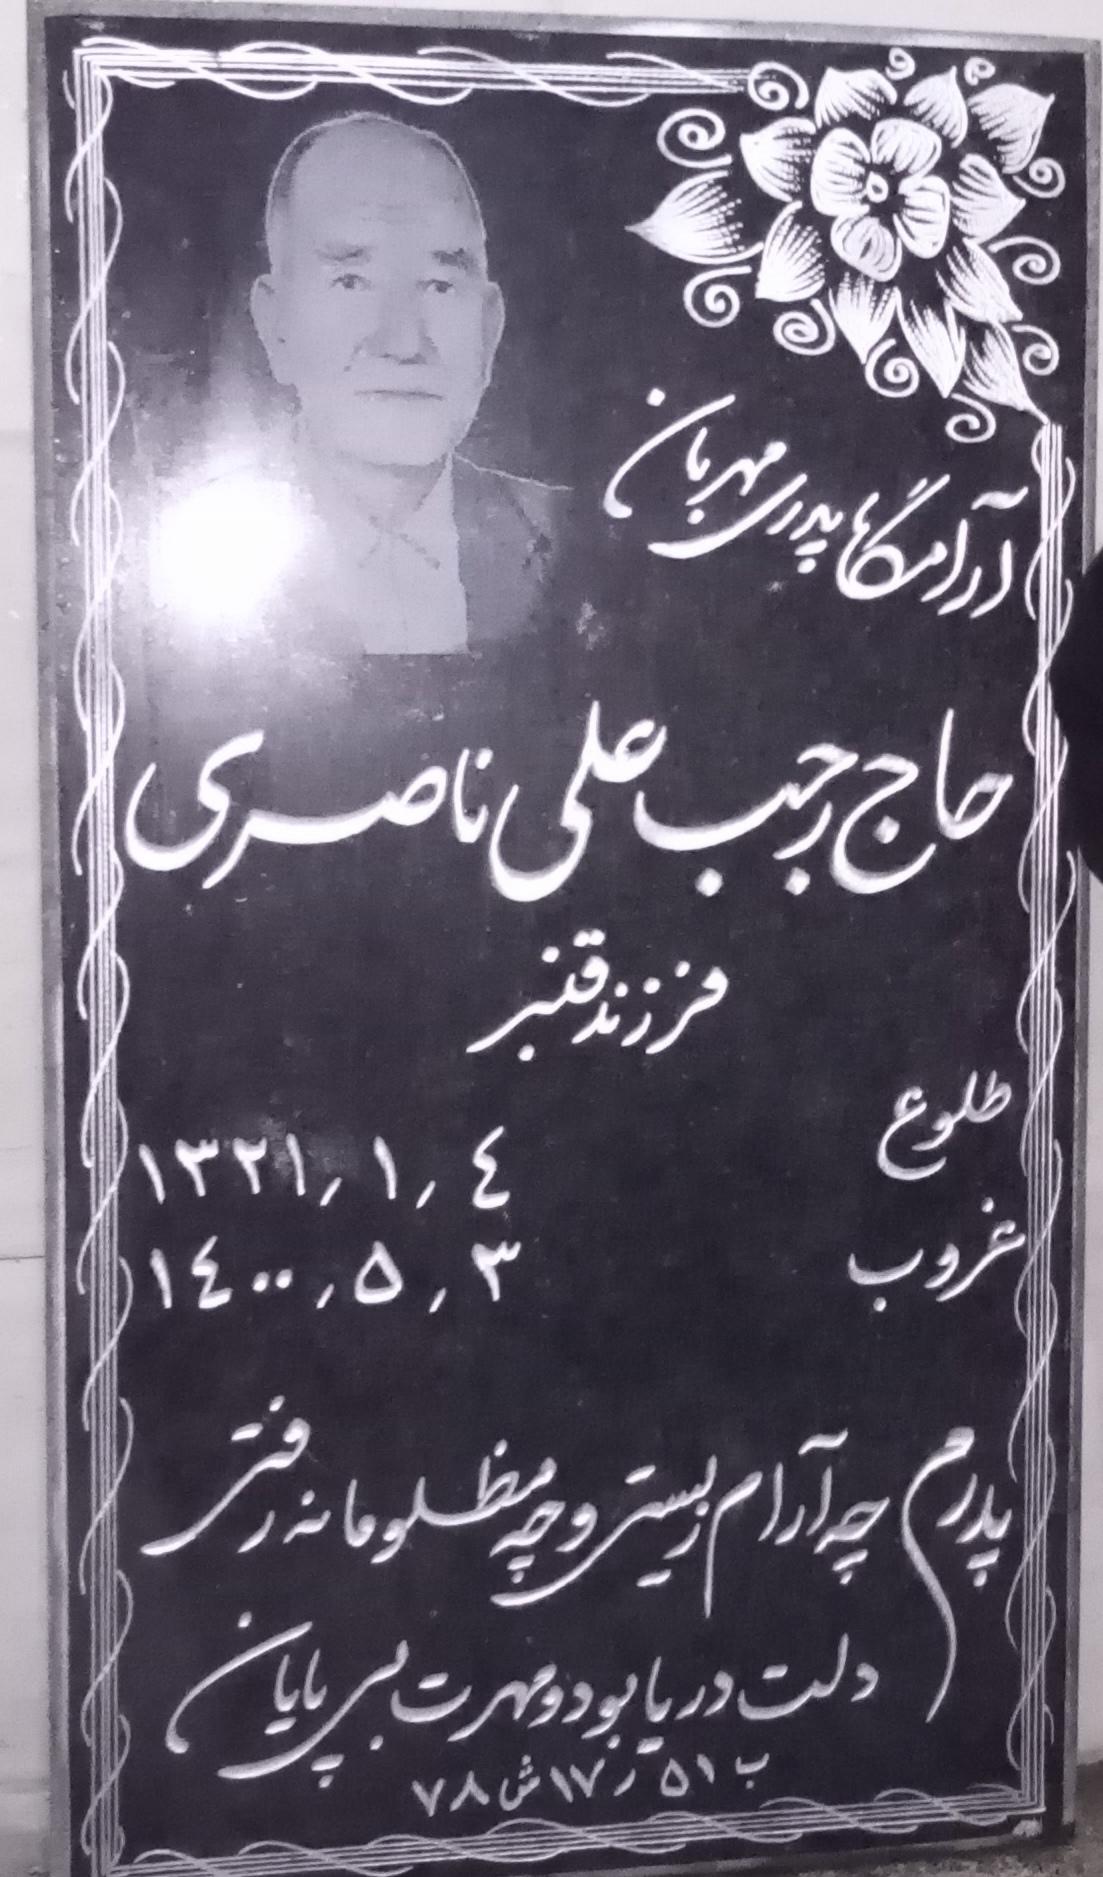 آرامگاه پدری مهربان
حاج رجب علی ناصری
فرزند قنبر
طلوع ۱۳۲۱/۱/۴
غروب ۱۴۰۰/۵/۳
پدرم چه آرام زیستی و چه مظلومانه رفتی
دلت دریا بود و مهرت بی پایان
ب ۵۱ ر ۱۷ ش ۷۸